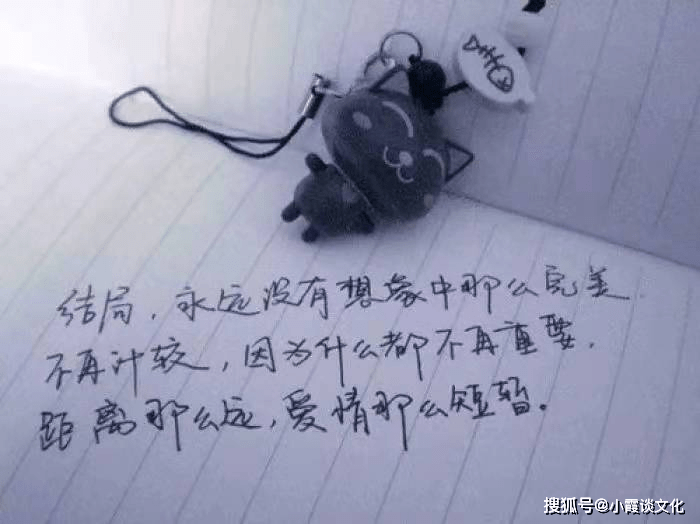 结局，永远没有想象中那么完美.
不再计较，因为什么都不再重要.
距离那么远，爱情那么短暂.
搜狐号@小霞谈文化